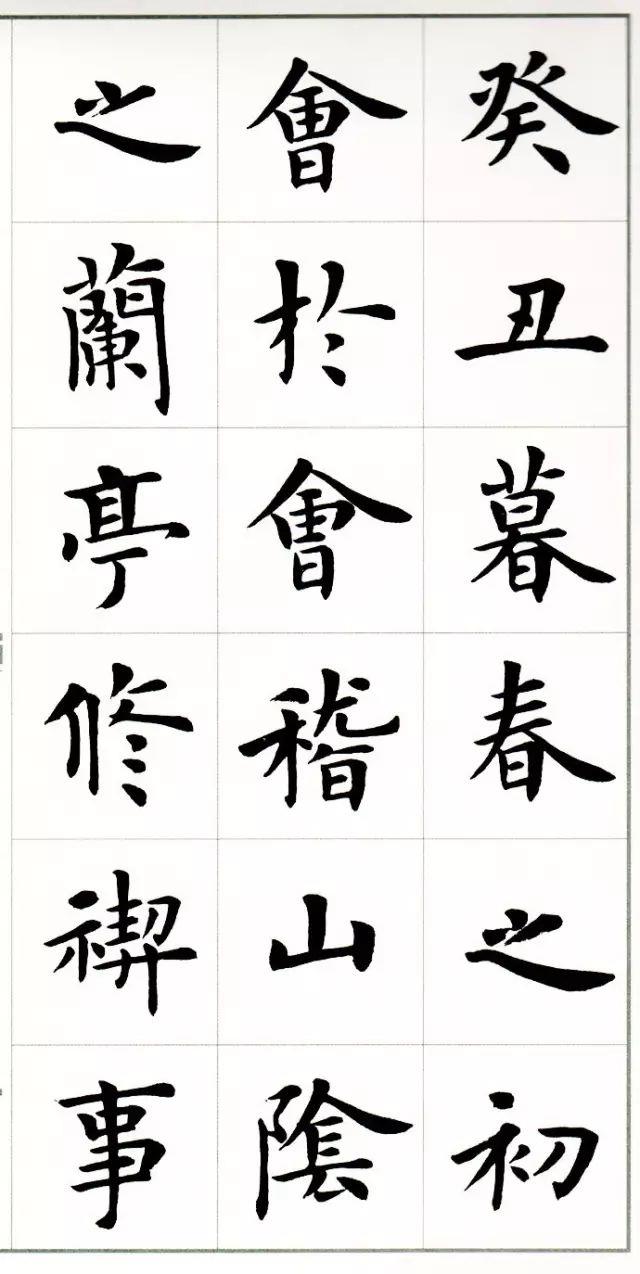 癸丑暮春之初
會於會稽山陰
之蘭亭修禊事